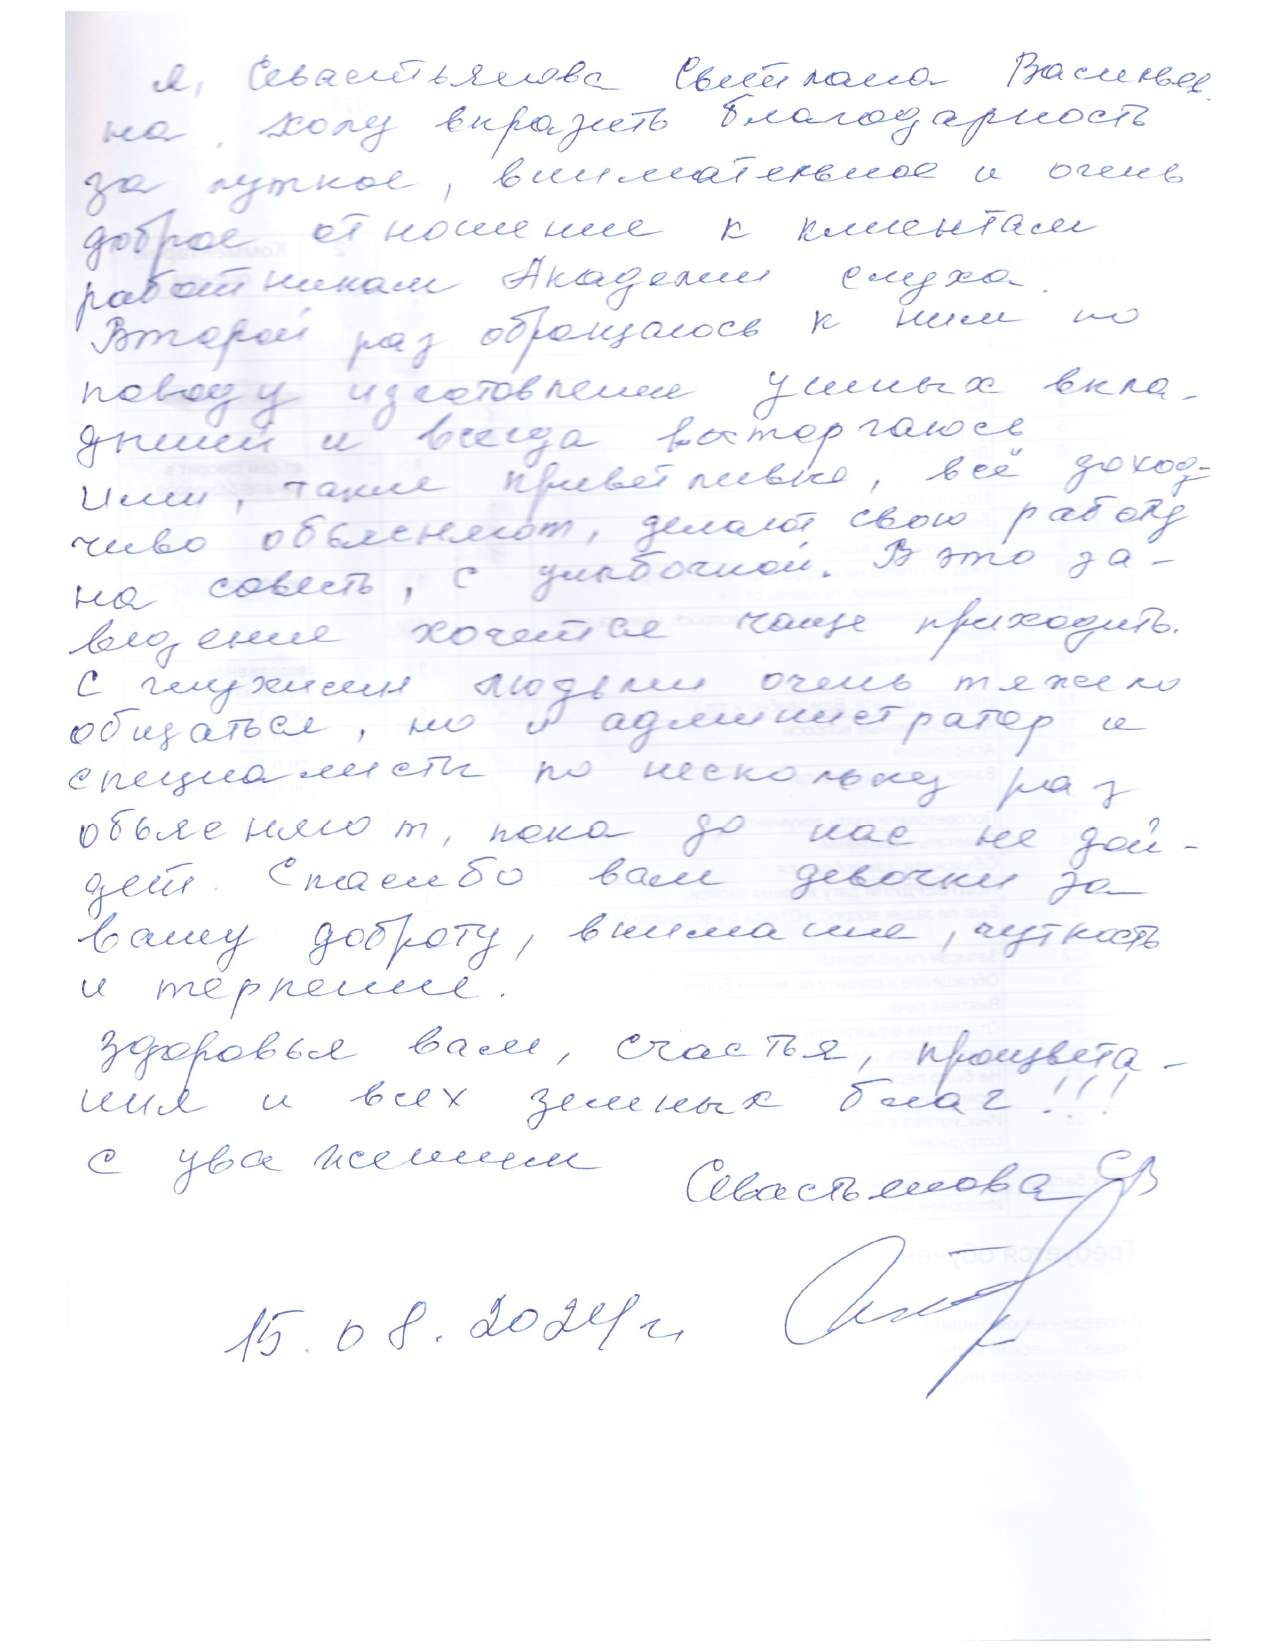 Я, Севастьянова Светлана Васильев
на, хочу выразить благодарность
за чуткое, внимательное и очень
доброе отношение к клиентам
работникам Академии слуха.
Второй раз обращаюсь к ним по
поводу изготовления ушных вкла-
дышей и всегда восторгаюсь
ими, такие приветливые, всё доход-
чиво объясняют, делают свою работу
на совесть, с улыбочкой. В это за-
ведение хочется чаще приходить.
С глухими людьми очень тяжело
общаться, но и администратор и
специалисты по нескольку раз
объясняют, пока до нас не дой-
дет. Спасибо вам девочки за
вашу доброту, внимание, чуткость
и терпение.
Здоровья вам, счастья, процвета-
ния и всех земных благ!!!
С уважением
Севастьянова СВ
15.08.2024 г.